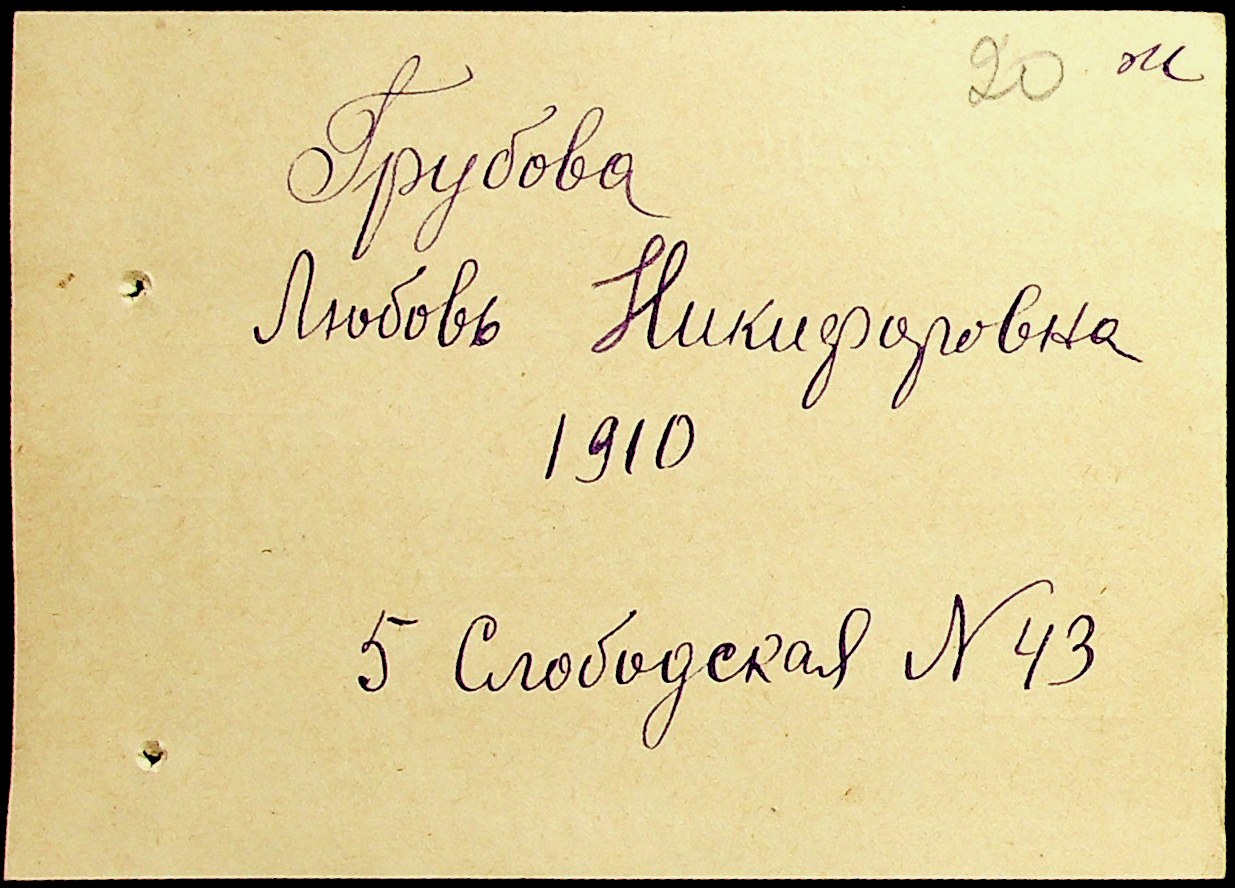 20 ж
Грубова
Любовь Никифоровна
1910
5 Слободская N 43